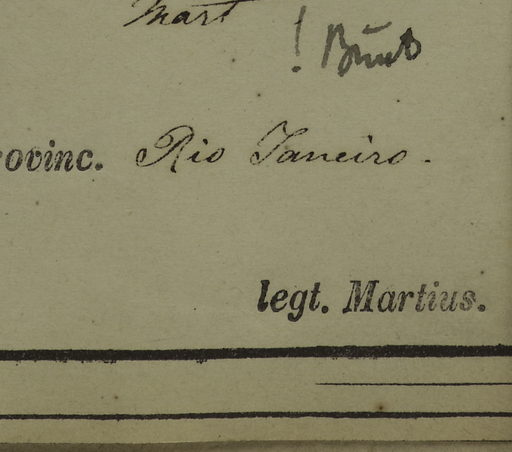 Mart
!
ovinc. Rio Janeiro.
legt. Martius.